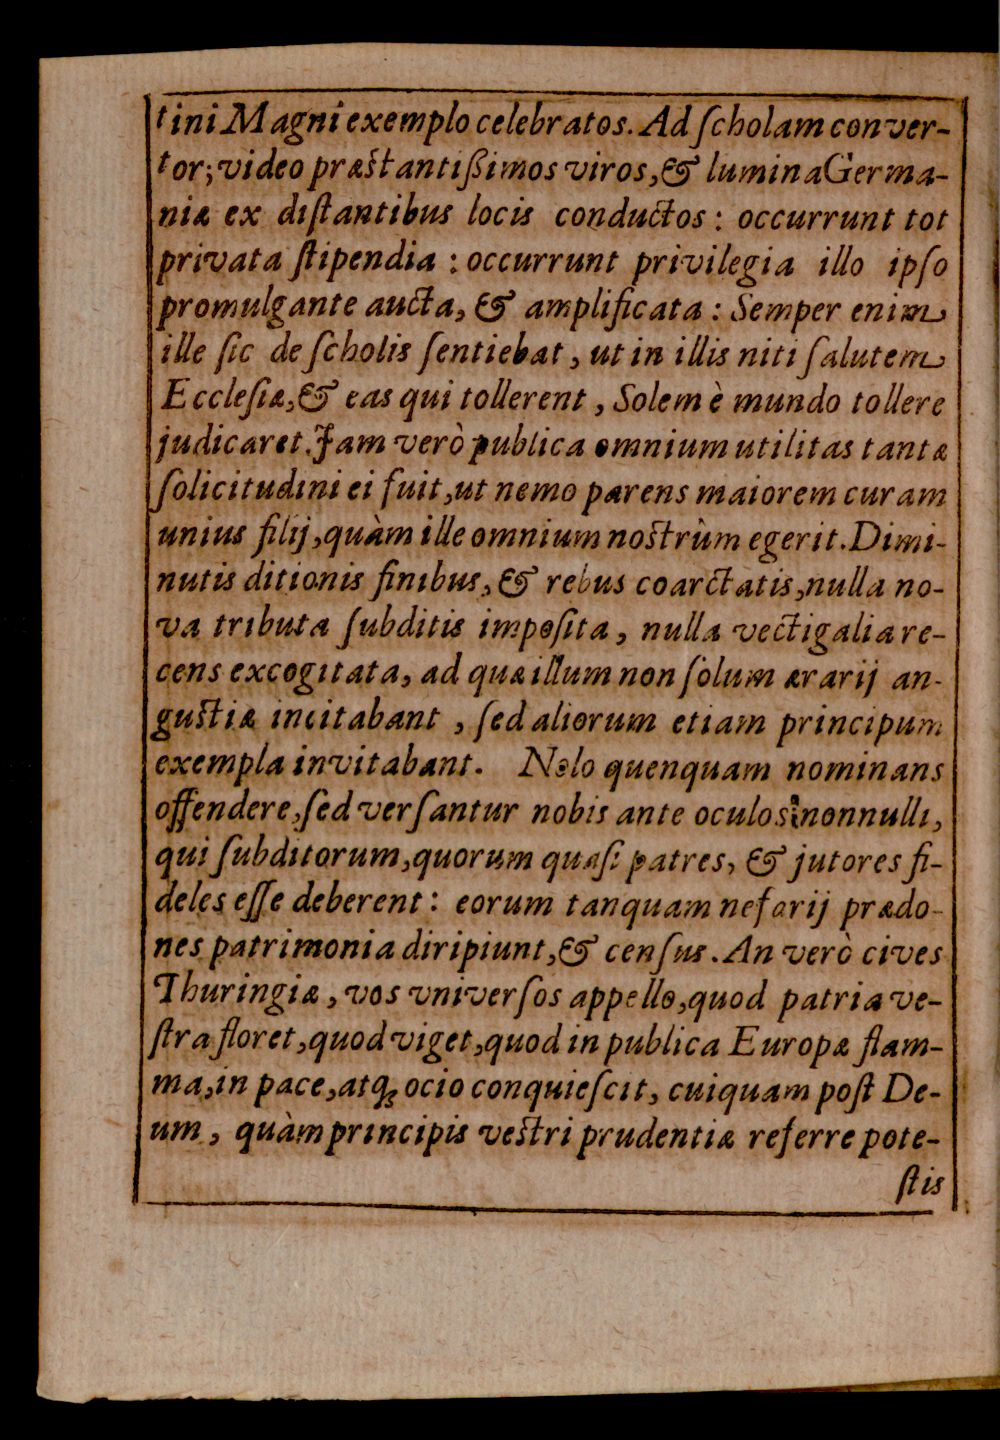 tini Magni exemplo celebratos. Ad ſcholam conver-
tor; video præſtantiſſimos viros, & lumina Germa-
niæ ex diſtantibus locis conductos: occurrunt tot
privata ſtipendia: occurrunt privilegia illo ipſo
promulgante aucta, & amplificata: Semper enim
ille ſic de ſcholis ſentiebat, ut in illis niti ſalutem
Eccleſiæ, & eas qui tollerent, Solem è mundo tollere
judicaret. Jam verò publica omnium utilitas tantæ
ſolicitudini ei fuit, ut nemo parens maiorem curam
unius filij, quàm ille omnium noſtrûm egerit. Dimi-
nutis ditionis finibus, & rebus coarctatis, nulla no-
va tributa ſubditis impoſita, nulla vectigalia re-
cens excogitata, ad quæ illum non ſolum ærarij an-
guſtiæ incitabant, ſed aliorum etiam principum
exempla invitabant. Nolo quenquam nominans
offendere, ſed verſantur nobis ante oculos nonnulli,
qui ſubditorum, quorum quaſi patres, & jutores fi-
deles eſſe deberent: eorum tanquam nefarij prædo-
nes patrimonia diripiunt, & cenſus. An verò cives
Thuringiæ, vos vniverſos appello, quod patria ve-
ſtra floret, quod viget, quod in publica Europæ flam-
ma, in pace, atq; ocio conquieſcit, cuiquam poſt De-
um, quàm principis veſtri prudentiæ referre pote-
ſtis